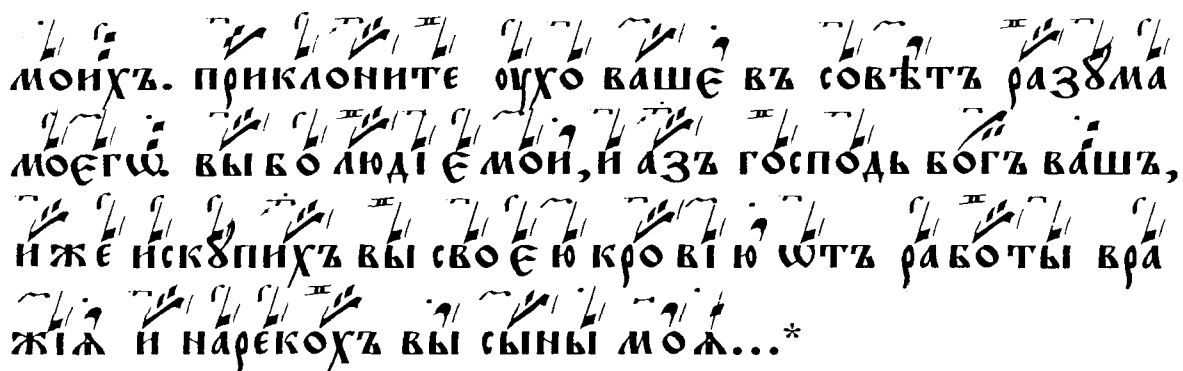 моихъ. приклоните ꙋхо ваше въ совѣтъ разꙋма
моегѡ вы бо людіе мои, и азъ господь богъ вашъ,
иже искꙋпихъ вы своею кровію ѡтъ работы вра
жія и нарекохъ вы сыны моѧ...*